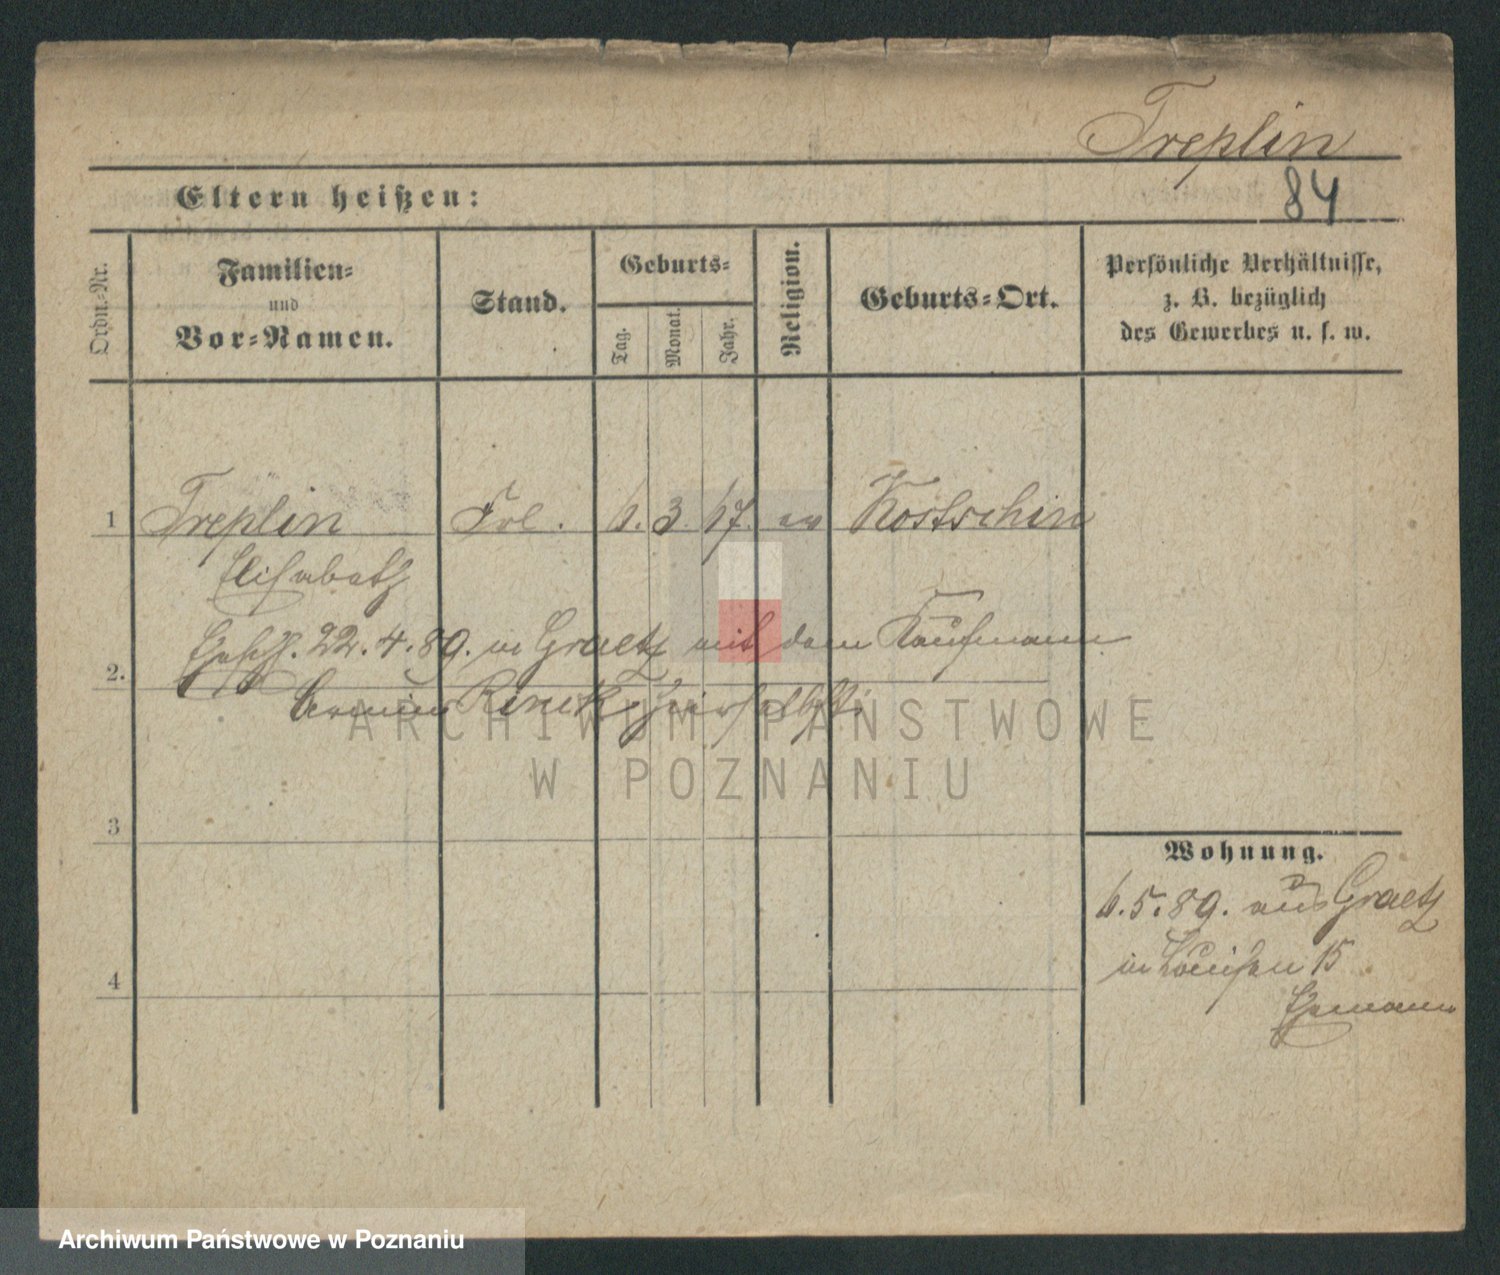 Treplin
84
Eltern heißen:
Ordn.-Nr.
Familien-
und
Vor-Namen.
Stand.
Geburts-
Tag.
Monat.
Jahr.
Religion.
Geburts-Ort.
Persönliche Verhältnisse,
z. B. bezüglich
des Gewerbes u. s. w.
1 Treplin Frl. 6. 3. 67. ev Kostschin
Elisabeth
22.4.89. in Graetz mit dem Kaufmann
2. Rinck hierselbst
ARCHIWUM PAŃSTWOWE
W POZNANIU
3
Wohnung.
6.5.89. aus Graetz
4 in Louisen 15
Ehemann
Archiwum Państwowe w Poznaniu